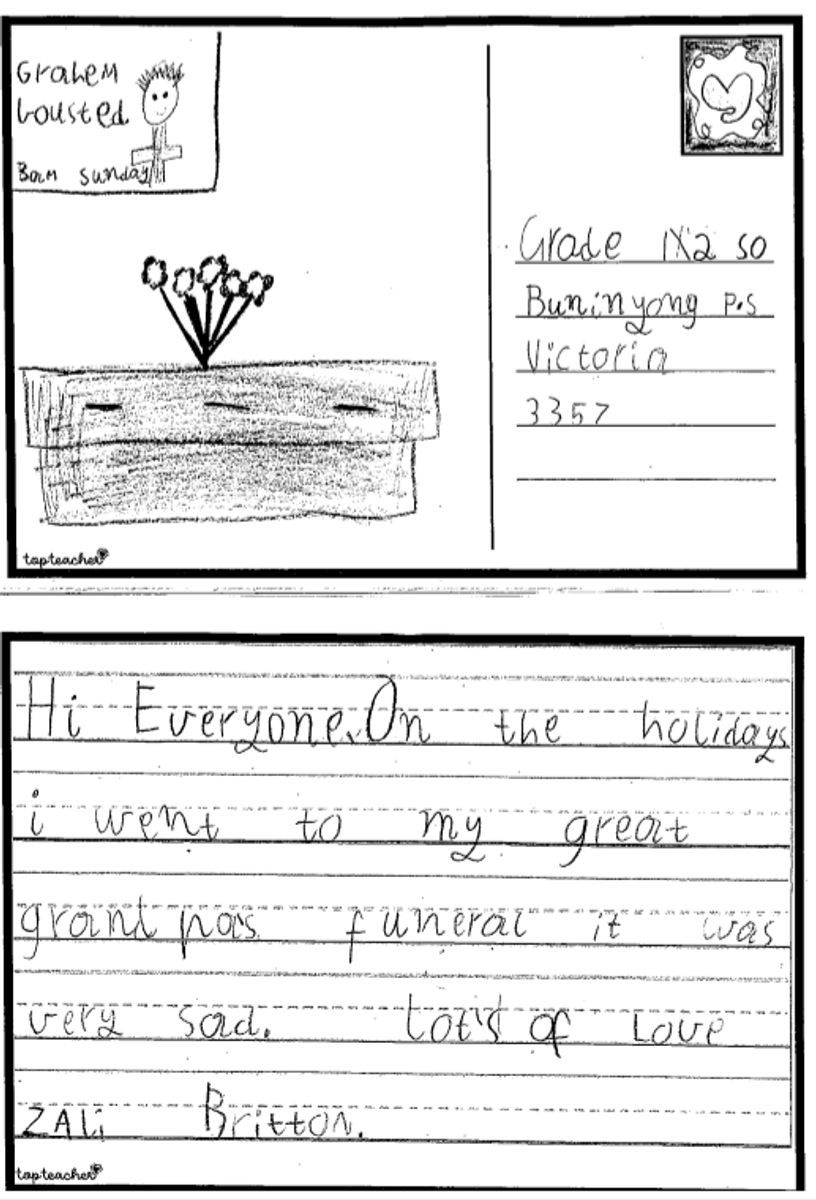 Grahem
bousted
Born sunday
Grade 1X2 so
Buninyong P.S
Victoria
3357
topteacher
Hi Everyone. On the holidays
i went to my great
grant pa's funeral it was
very sad. Lot's of Love
ZALi Britton.
topteacher